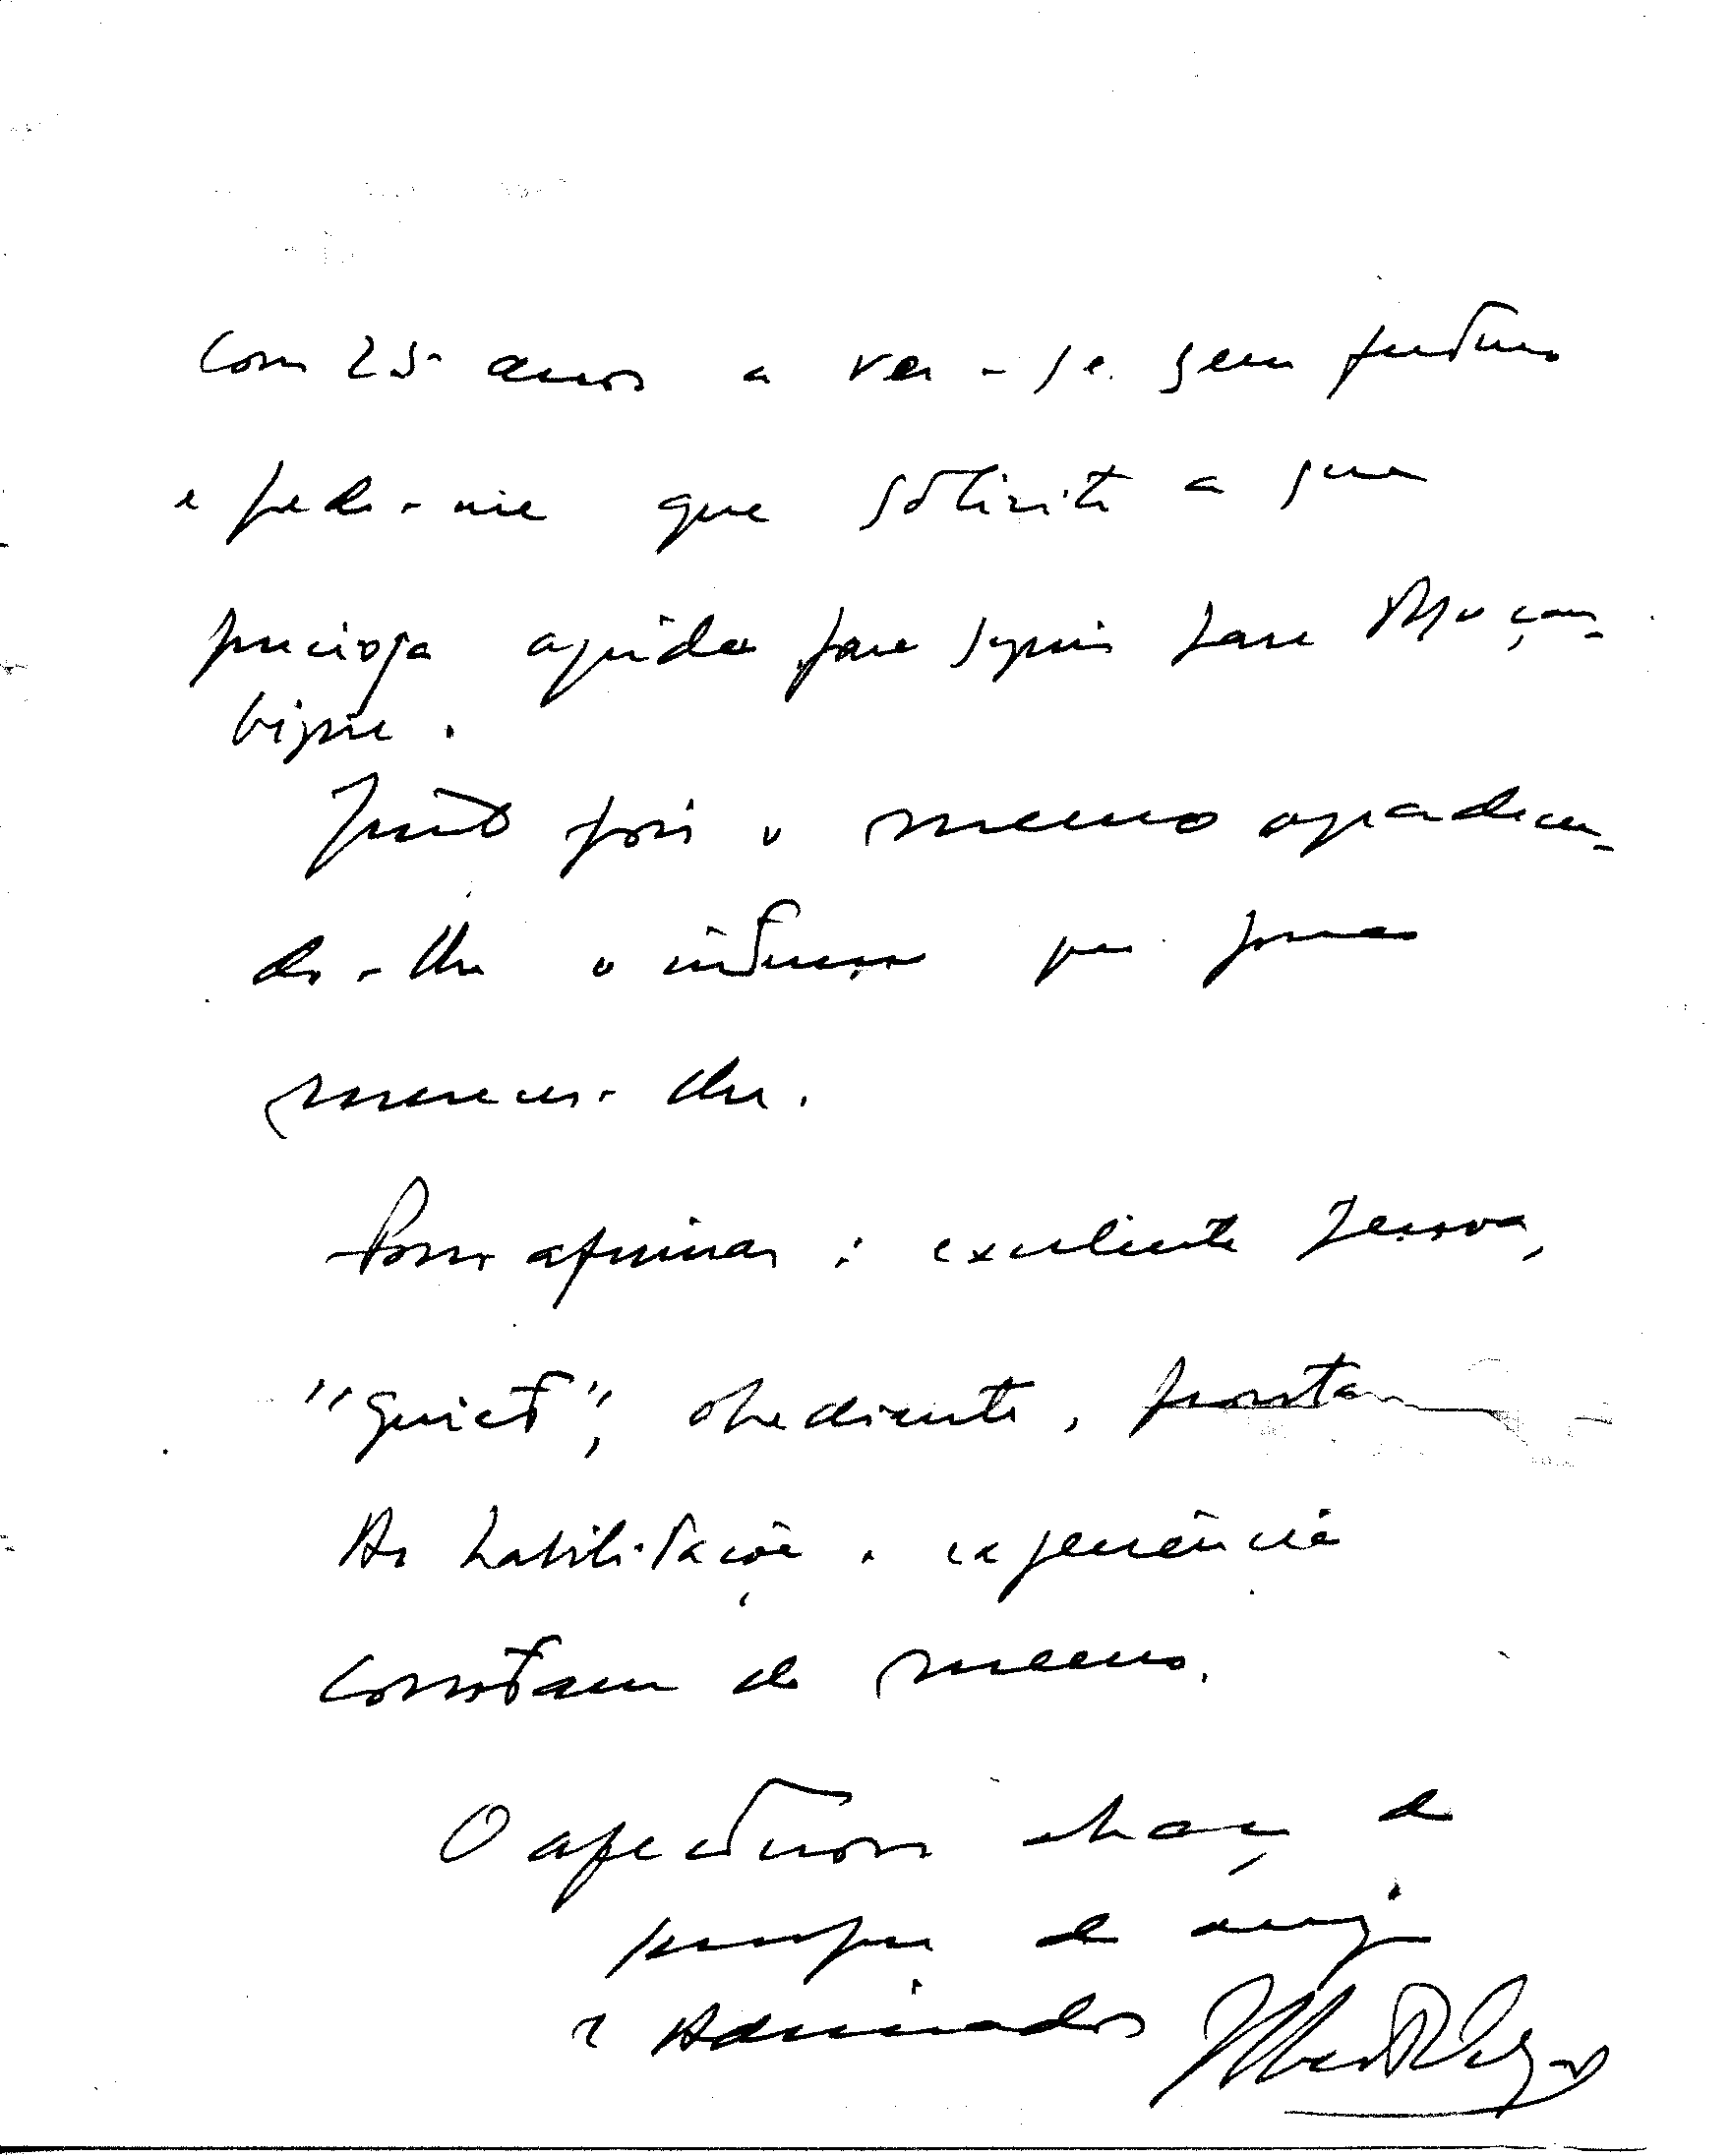 com 25 anos a ver-se sem futuro
e pede-me que solicite a sua
preciosa ajuda para seguir para Moçam-
bique.
Junto pois o memo agradecen-
do-lhe o interesse que possa
merecer-lhe.
Posso afirmar: excelente pessoa,
"quieto", obediente,
As habilitações e experiência
constam do memo.
O afectuoso abraço do
sempre seu amigo
e Admirador